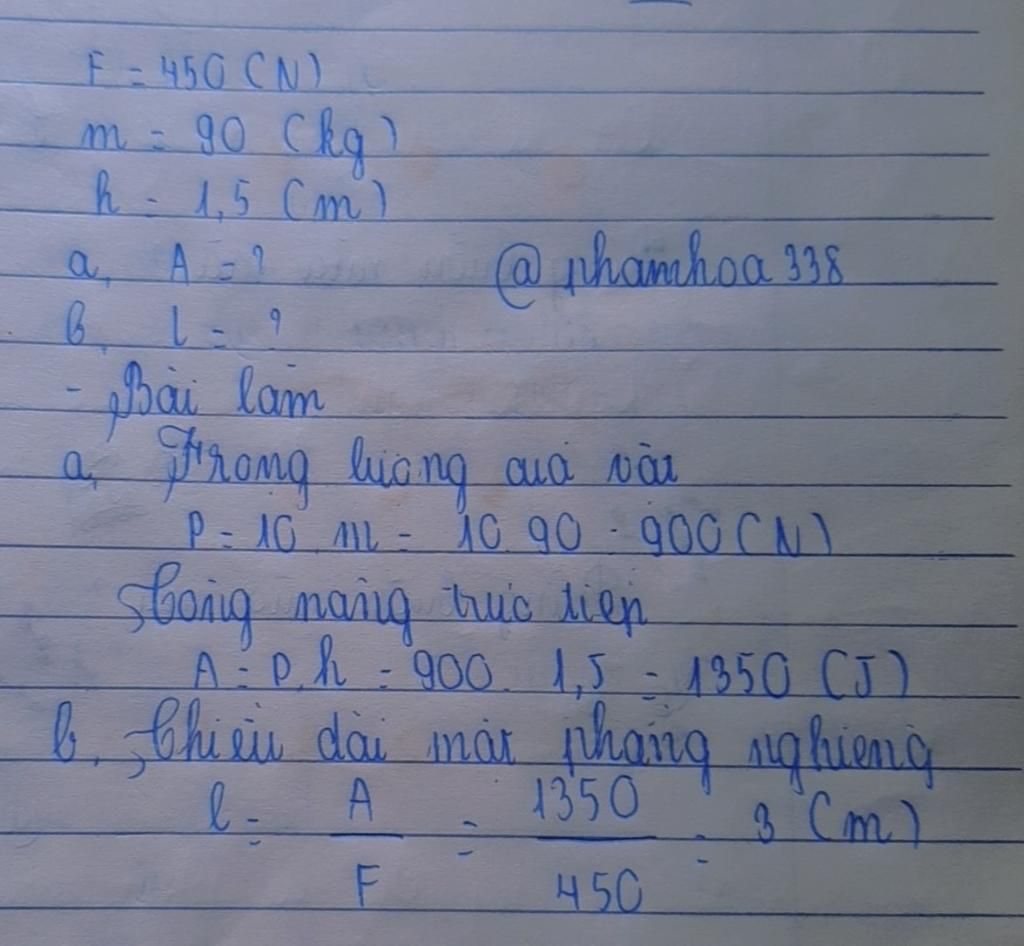 F = 450 (N)
m = 90 (kg)
h = 1,5 (m)
a, A = ?
@phamhoa338
b, l = ?
- Bài làm
a, Trọng lượng của vật
P = 10 . m = 10 . 90 = 900 (N)
Công nâng trực tiếp
A = P.h = 900 . 1,5 = 1350 (J)
b, Chiều dài mặt phẳng nghiêng
l = A / F = 1350 / 450 = 3 (m)